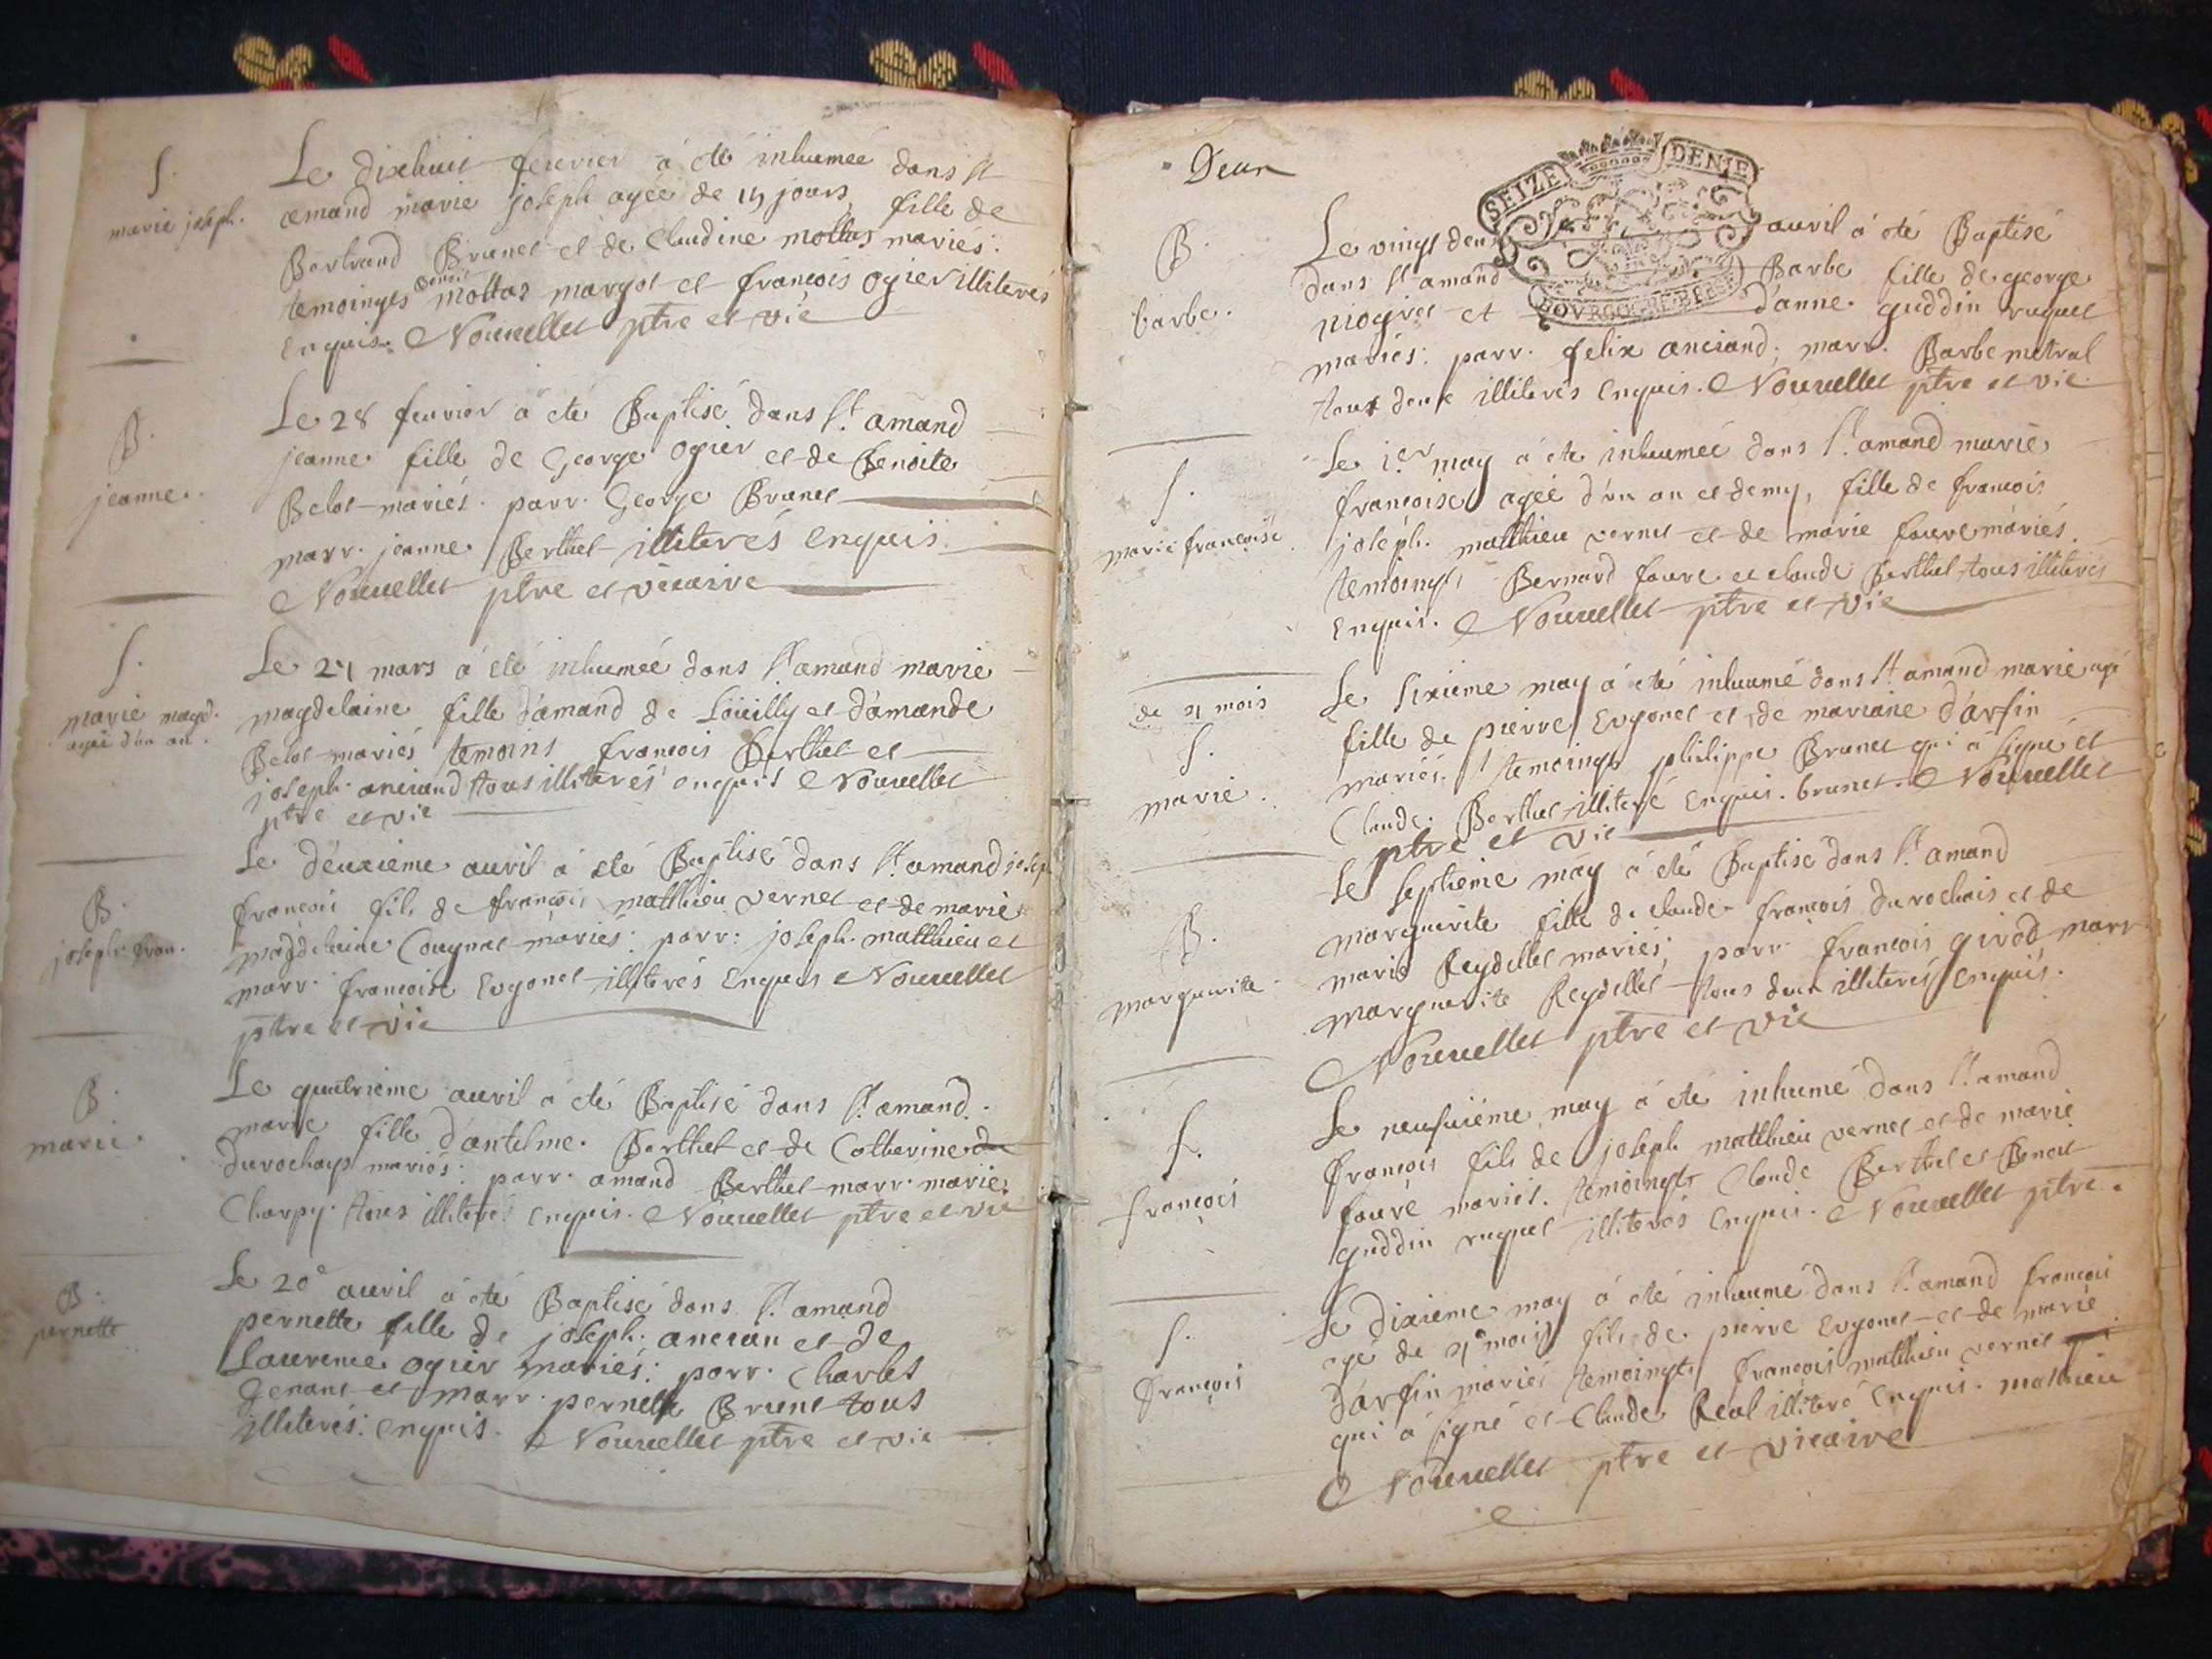 S.
marie joseph.
Le dixhuit feuvrier à été inhumée dans st
amand marie joseph agée de 15 jours, fille de
Bertrand Brunet et de Claudine mottas mariés:
temoingts Benoit mottas margot et françois ogier illiterés
enquis. Nouuellet ptre et vic
B.
jeanne.
Le 28 feuvrier a été Baptisé dans st. amand
jeanne fille de George ogier et de Benoite
Belot mariés. parr. George Brunet
marr. jeanne Berthet illiterés enquis.
Nouuellet ptre et vicaire
S.
marie magd.
agée d'un an.
Le 24 mars à été inhumée dans st amand marie
magdelaine fille d'amand de Loüilly et d'amande
Belot mariés temoins françois Berthet et
joseph anciand tous illiterés enquis Nouuellet
ptre et vic
B.
joseph fran.
Le deuxieme auril à été Baptisé dans st. amand joseph
françois fils de françois matthieu vernet et de marie
magdelaine Cougnat mariés: parr: joseph matthieu et
marr. françoise Eugonet illiterés enquis Nouuellet
ptre et vic
B.
marie.
Le quatrieme auril à été Baptisé dans st. amand
marie fille d'antelme Berthet et de Catherine du
durochap mariés: parr. amand Berthet marr. marie
Charpy. tous illiterés enquis. Nouuellet ptre et vic
B.
pernette
Le 20e auril à été Baptisé dans st. amand
pernette fille de joseph ancian et de
Laurence ogier mariés: parr. Charles
Genant et marr. pernette Brunet tous
illiterés: enquis. Nouuellet ptre et vic
Deux
SEIZE DENIE
B.
barbe.
Le vingt deux auril à été Baptisé
dans st amand Barbe fille de george
niogret et d'anne guddin ruguet
mariés: parr. felix anciand; marr. Barbe metral
tous deux illiterés enquis. Nouuellet ptre et vic.
S.
marie françoise
Le 1.er may à été inhumée dans st. amand marie
françoise agée d'un an et demy, fille de françois
joseph matthieu vernet et de marie faure mariés.
temoingts Bernard faure et claude Berthet tous illiterés
enquis. Nouuellet ptre et vic
de 4 mois
S.
marie.
Le sixieme may à été inhumé dans st amand marie agé
fille de pierre Eugonet et de mariane d'arfin
mariés. temoingts philippe Brunet qui à signé et
Claude Berthet illiteré enquis. brunet. Nouuellet
ptre et vic
B.
marguerite
Le septieme may à été Baptisé dans st. amand
marguerite fille de claude françois durochais et de
marie Reydellet mariés; parr. françois girod marr
marguerite Reydellet tous deux illiterés enquis.
Nouuellet ptre et vic
S.
françois
Le neufuiéme may à été inhumé dans st. amand
françois fils de joseph matthieu vernet et de marie
faure mariés. temoingts Claude Berthet et Benoit
guddin ruguet illiterés enquis. Nouuellet ptre.
S.
françois
Le dixieme may à été inhumé dans st. amand françois
agé de 4 mois fils de pierre Eugonet et de marie
d'arfin mariés temoingts françois matthieu vernet
qui à signé et Claude Real illiteré enquis. mathieu
Nouuellet ptre et vicaire